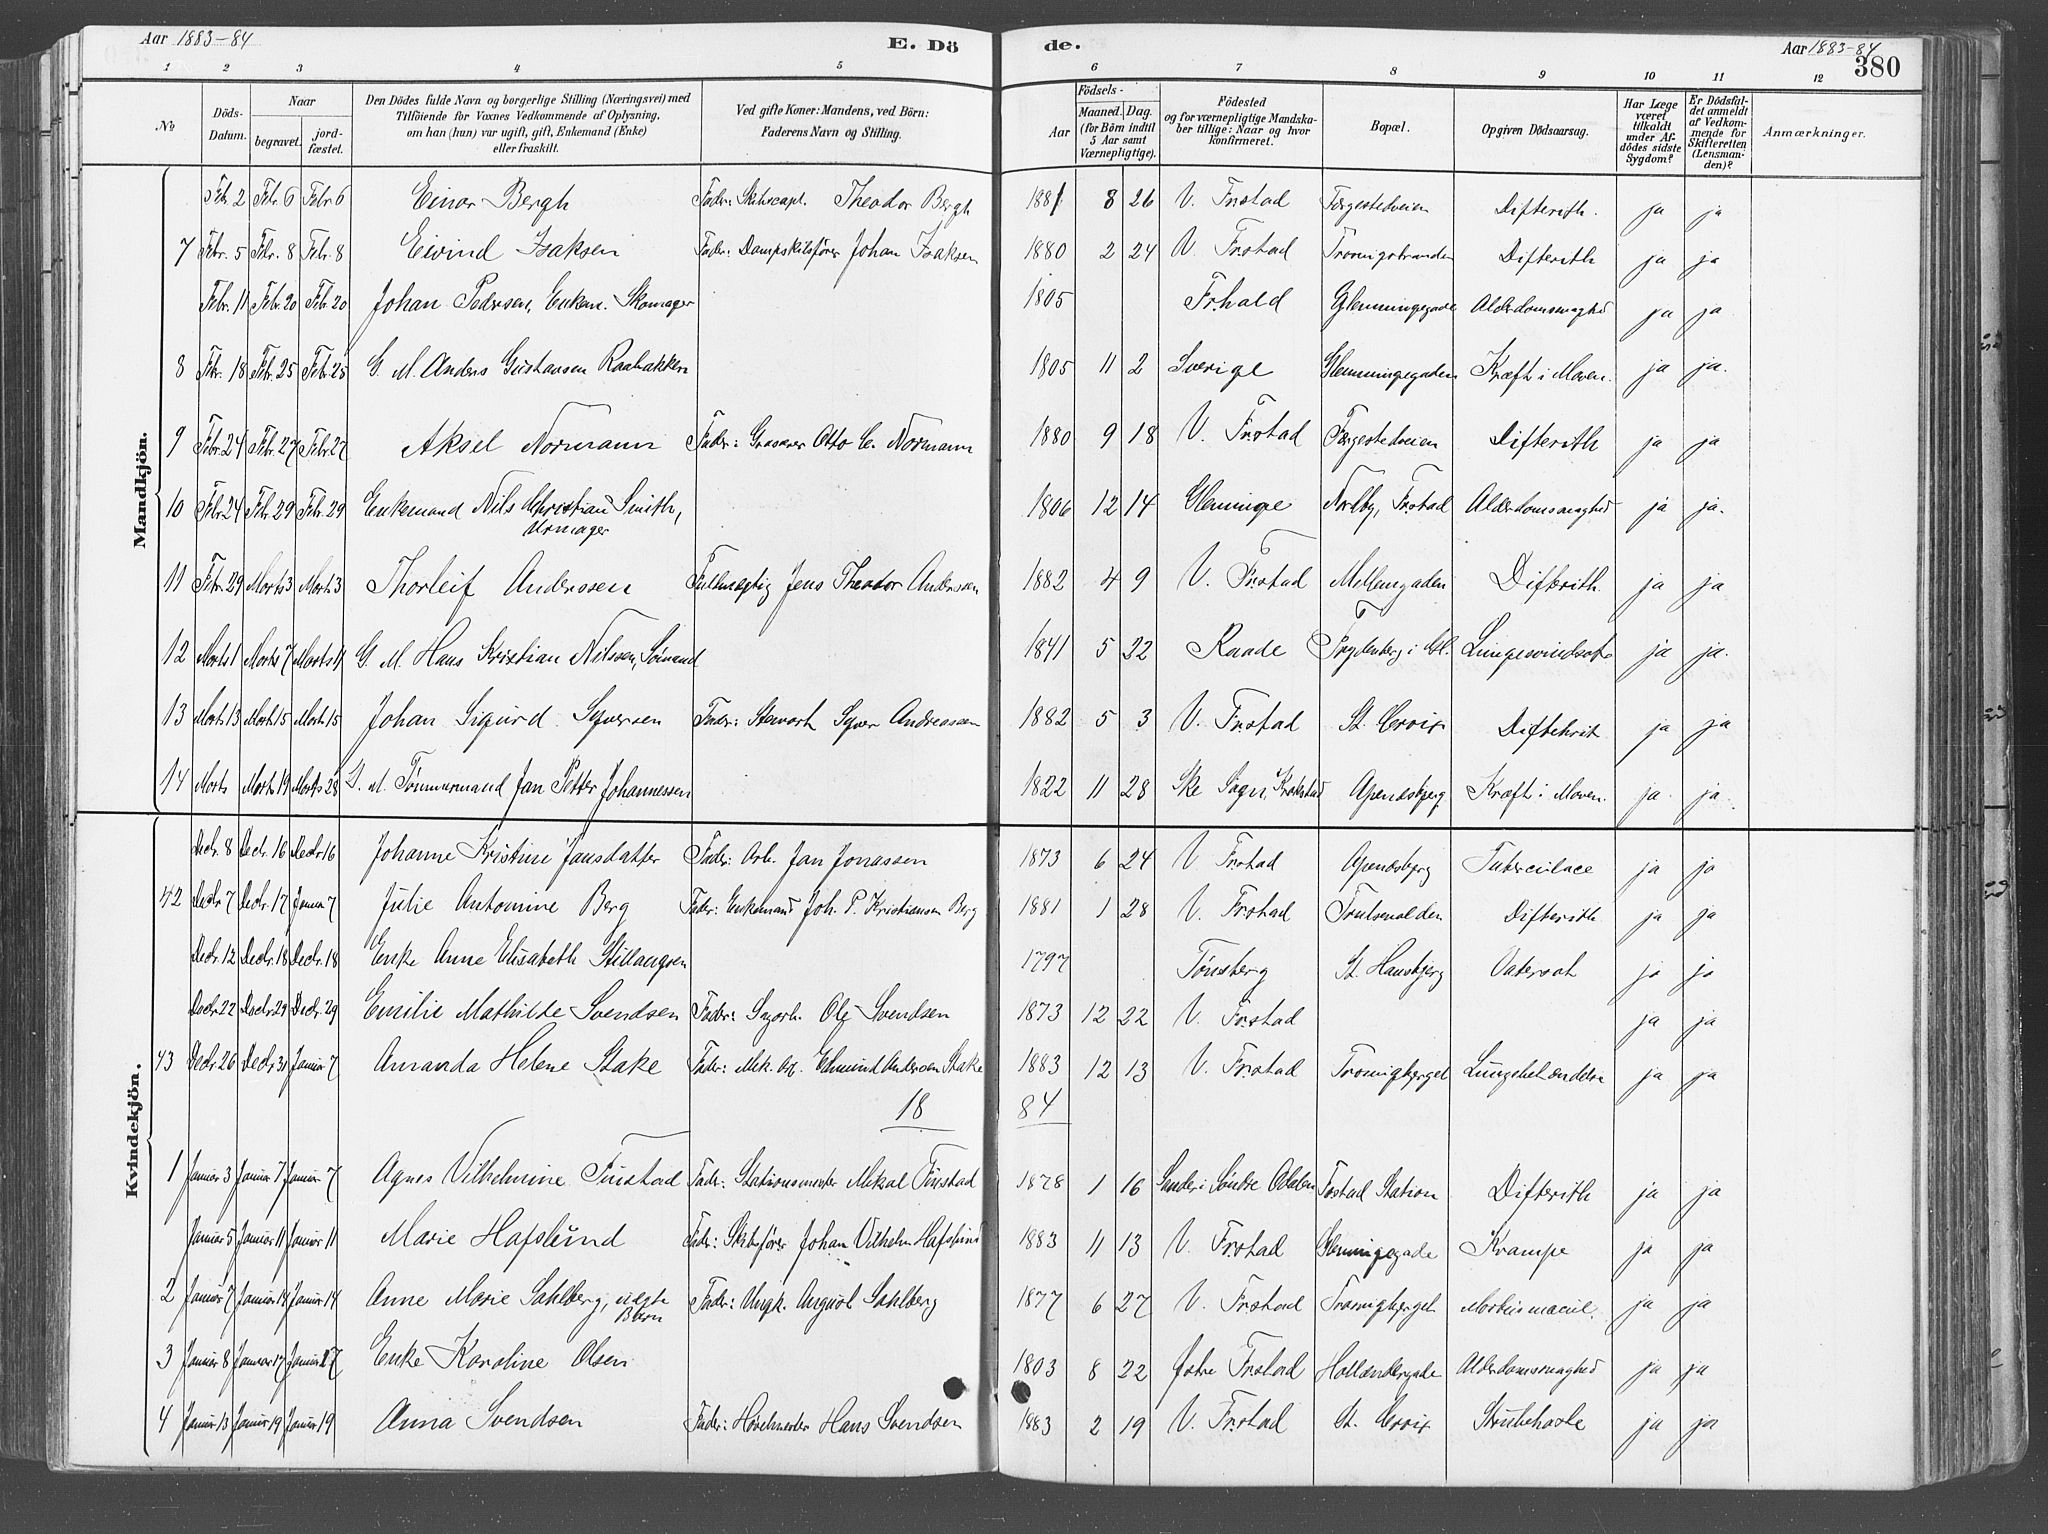 Aar 1883-84
E. Dö
de.
Aar 1883-84
380
1 2 3 4 5 6 7 8 9 10 11 12
No
Döds-Datum.
Naar
begravet.
jord-fæstet.
Den Dödes fulde Navn og borgerlige Stilling (Næringsvei) med
Tilföiende for Voxnes Vedkommende af Oplysning,
om han (hun) var ugift, gift, Enkemand (Enke)
eller fraskilt.
Ved gifte Koner: Mandens, ved Börn:
Faderens Navn og Stilling.
Födsels-
Aar
Maaned. Dag.
(for Börn indtil
5 Aar samt
Værnepligtige).
Födested
og for værnepligtige Mandska-
ber tillige: Naar og hvor
konfirmeret.
Bopæl.
Opgiven Dödsaarsag.
Har Læge
været
tilkaldt
under Af-
dödes sidste
Sygdom?
Er Dödsfal-
det anmeldt
af Vedkom-
mende for
Skifteretten
(Lensman-
den)?
Anmærkninger.
Mandkjön.
Febr 2 Febr. 6 Febr 6 Einar Bergh Fader: Skibscapt. Theodor Bergh 1881 8 26 V. Frstad Færgestedveien Difterith. ja ja
7 Febr. 5 Febr. 8 Febr. 8 Eivind Isaksen Fader: Dampskibsfører Johan Isaksen 1880 2 24 V. Frstad Difterith ja ja
Febr. 11 Febr 20 Febr 20 Johan Pedersen, Enkem. Skomager 1805 Frhald Glemmingegade Alderdomssvaghed ja ja
8 Febr. 18 Febr. 25 Febr. 25 G. M. Anders Gustavsen Raabakken 1805 11 2 Sverige Glemmingegaden Kræft i Maven. ja ja.
9 Febr 24 Febr. 27 Febr. 27 Aksel Normann Fader: Gravører Otto C. Normann 1880 9 18 V. Frstad Færgestedveien Difterith ja ja
10 Febr. 24 Febr. 29 Febr. 29 Enkemand Nils Christian Smith,
Urmager 1806 12 14 Glemminge Nørlby, Frstad Alderdomssvaghed ja ja.
11 Febr. 29 Marts 3 Marts 3 Thorleif Anderssen Fuldmægtig Jens Theodor Anderssen 1882 4 9 V. Frstad Mellemgaden Difterith. ja ja
12 Marts 1 Marts 7 Marts G. M. Hans Kristian Nilssen, Sømand 1841 5 22 Raade Trydenberg i Gl. Lungesvindsot ja ja.
13 Marts 13 Marts 15 Marts 15 Johan Sigurd Syversen Fader: Stewart Syver Andreassen 1882 5 3 V. Frstad St. Croix Diftehrit ja ja
14 Marts Marts 19 Marts 28 G. M. Tømmermand Jan Petter Johannessen 1822 11 28 Ske Sogn, Krokstad Apenæsbjerg Kræft i Maven. ja ja
Kvindekjön.
Decbr. 8 Decbr. 16 Decbr 16 Johanne Kristine Jansdatter Fader: Arb. Jan Jonassen 1873 6 24 V. Frstad Apenæsbjerg Tuberculace ja ja
42 Decbr 7 Decbr. 17 Januar 7 Julie Antonine Berg Fader: Enkemand Joh. P. Kristiansen Berg 1881 1 28 V. Frstad Difterith ja ja
Decbr. 12 Decbr. 18 Decbr. 18 Enke Anne Elisabeth Stillaugsen 1797 Tønsberg St. Hansbjerg Vatersot ja ja
Decbr. 22 Decbr. 29 Decbr. 29 Emilie Mathilde Svendsen Fader: Sagarb. Ole Svendsen 1873 12 22 V. Frstad ja ja
43 Decbr 26 Decbr 31 Januar 7 Amanda Helene Stake Fader: Mek. Arb. Edmund Andersen Stake 1883 12 13 V. Frstad Tromigbjerget Lungebetændelse ja ja
18 84
1 Januar 3 Januar 7 Januar 7 Agnes Vilhelmine Finstad Fader: Stationsmester Mikal Finstad 1878 1 16 Sander i Søndre Odalen Fstad Station Difterith ja ja
Januar 5 Januar 11 Januar 11 Marie Hafslund Fader: Skibsfører Johan Vilhelm Hafslund 1883 11 13 V. Frstad Glemmingegade Krampe ja ja
2 Januar 7 Januar 14 Januar 14 Anne Marie Sahlberg, uægte
Barn Fader: Ungk. August Sahlberg 1877 6 27 V. Frstad Tromigbjerget Morbus macul. ja ja
3 Januar 8 Januar 17 Januar 17 Enke Karoline Olsen 1803 8 22 Østre Frstad Hollændergade Alderdomssvaghed ja ja
4 Januar 13 Januar 19 Januar 19 Anna Svendsen Fader: Høvelmester Hans Svendsen 1883 2 19 V. Frstad St. Croix Strubehoste ja ja